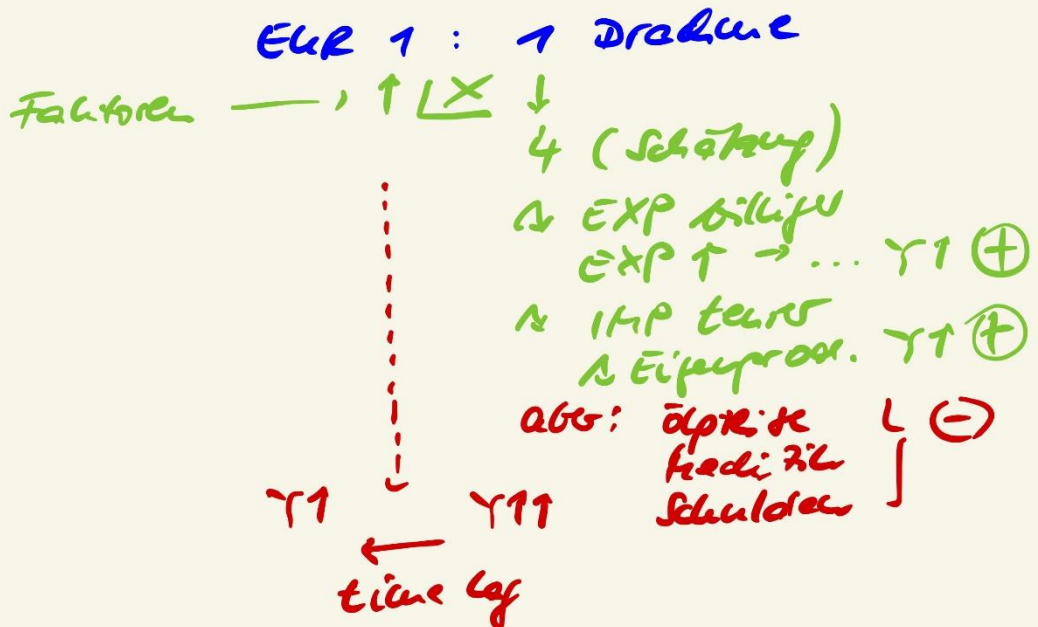 EUR 1 : 1 Drachme
Faktoren → ↑ X ↓
4 (Schätzung)
EXP billiger
EXP ↑ → ... Y↑ +
IMP teurer
Eigenprod. Y↑ +
aber: Ölpreise -
Medizin
Schulden
Y↑ Y↑↑
←
time lag